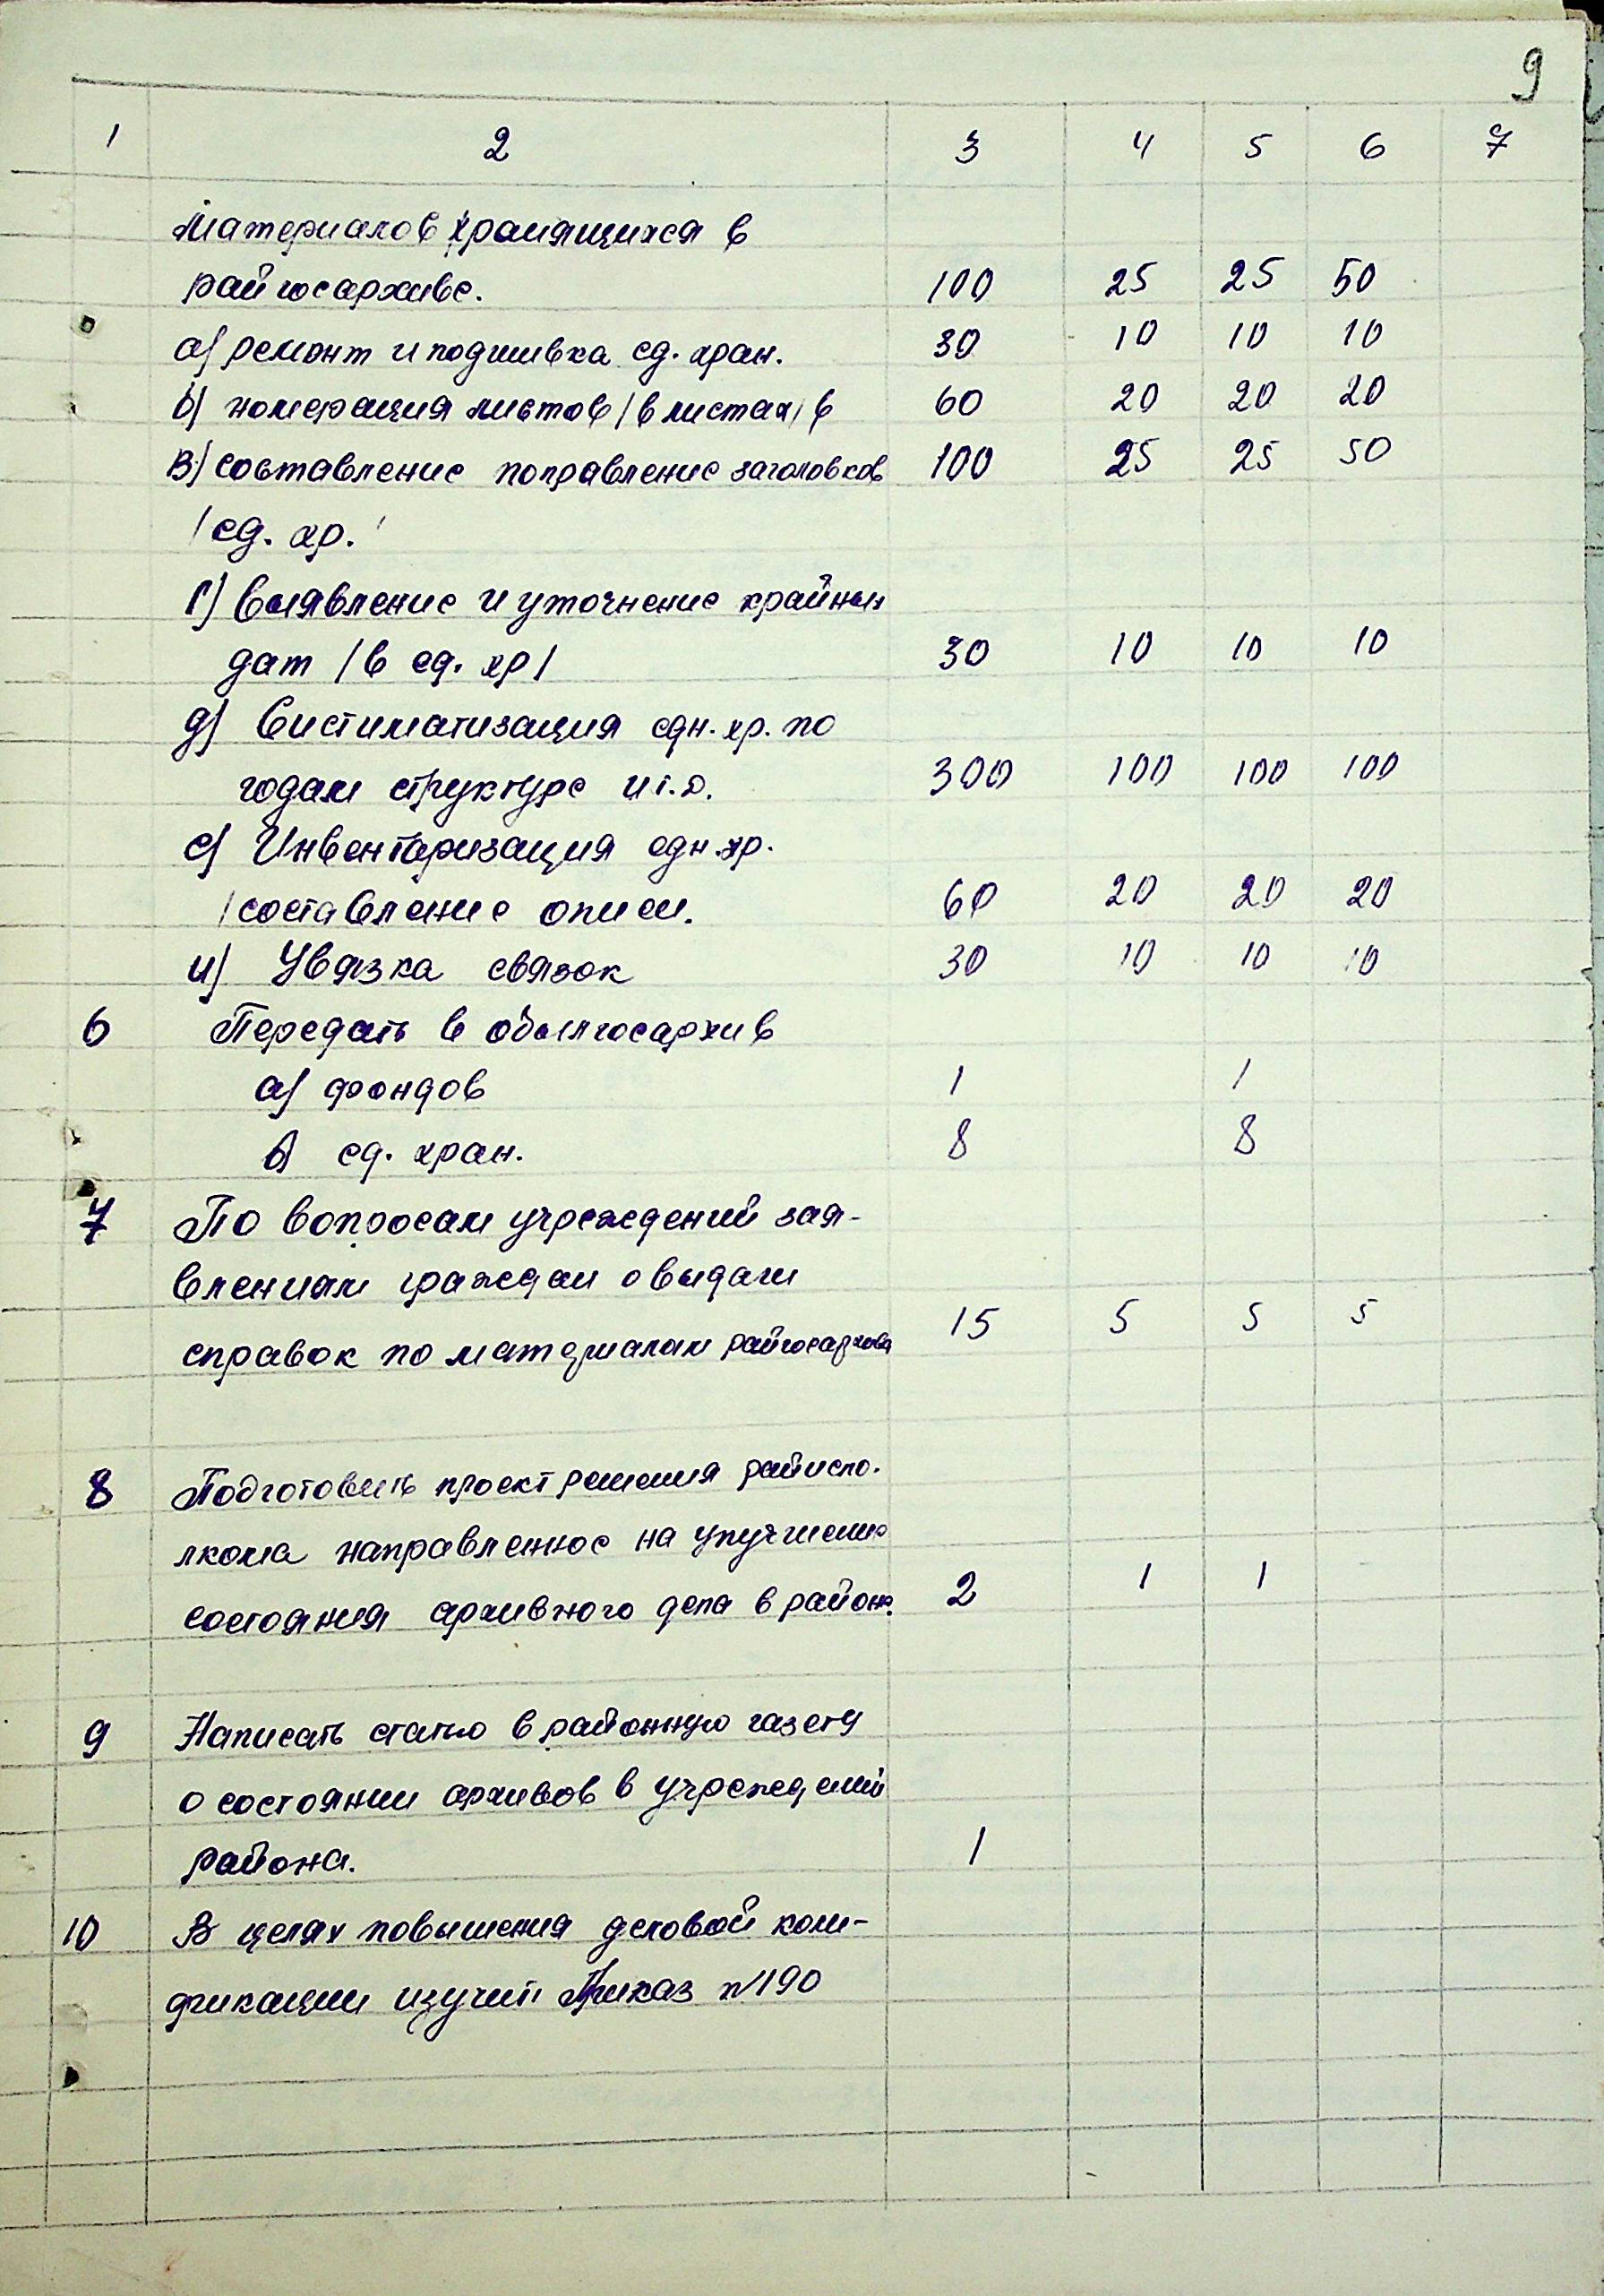 9
1 2 3 4 5 6 7
Материалов хранящихся в
райгосархиве. 100 25 25 50
а/ ремонт и подшивка ед. хран. 30 10 10 10
б/ номерация листов /в листах/ в 60 20 20 20
в/ составление поправление заголовков 100 25 25 50
/ед. хр./
г/ выявление и уточнение крайных
дат /в ед. хр/ 30 10 10 10
д/ Систиматизация едн. хр. по
годам структуре и т.д. 300 100 100 100
е/ Инвентаризация едн. хр.
/составление описи. 60 20 20 20
и/ Увязка связок 30 10 10 10
6 Передать в облгосархив
а/ фондов 1 1
б/ ед. хран. 8 8
7 По вопросам учреждений зая-
влениям граждан о выдачи
справок по материалам райгосархива 15 5 5 5
8 Подготовить проект решения райиспо-
лкома направленное на улучшение
состояния архивного дела в районе. 2 1 1
9 Написать статью в районную газету
о состоянии архивов в учреждений
района. 1
10 В целях повышения деловой кали-
фикации изучить Приказ №190